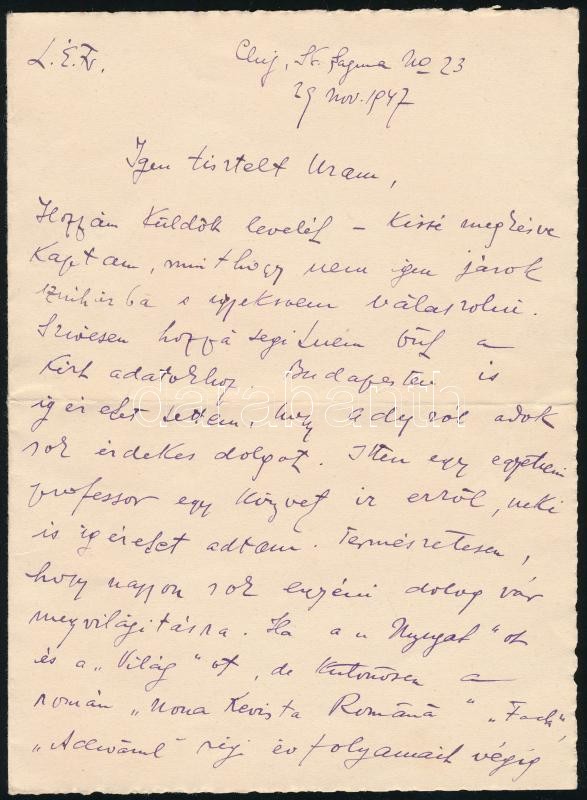 Cluj, St. No 23
29 nov. 1947
Igen tisztelt Uram,
Hozzám küldött levelét – kissé megkésve
kaptam, minthogy nem igen járok
szinházba s igyekszem válaszolni.
Szivesen hozzá segitném Önt a
kért adatokhoz. Budapesten is
igéretet tettem, hogy Adyról adok
sok érdekes dolgot. Itten egy egyetemi
professor egy könyvet ir erről, neki
is igéretet adtam. Természetesen,
hogy nagyon sok egyéni dolog vár
megvilágitásra. Ha a „Nyugat"ot
és a „Világ"ot, de különösen a
román „Noua Revista Română"
„Adevărul" régi évfolyamait végig
darabanth